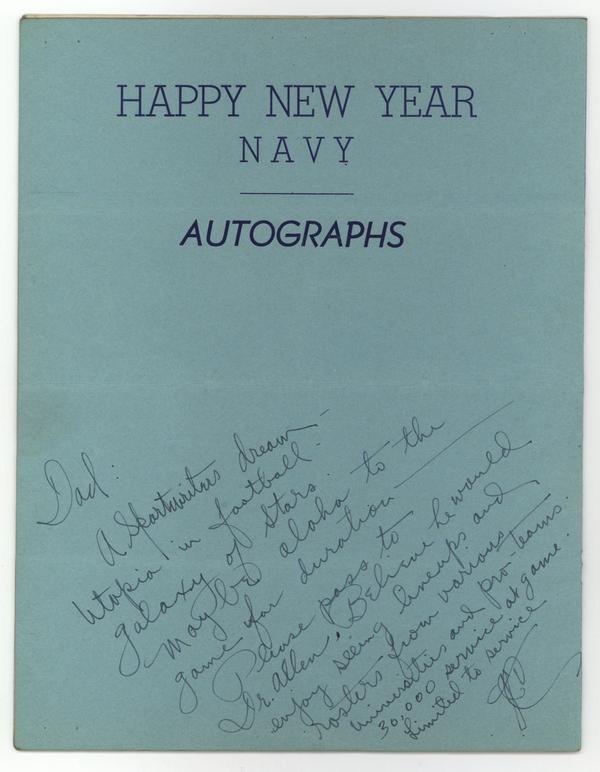 HAPPY NEW YEAR
NAVY
AUTOGRAPHS
Dad:
A Sportwriters dream –
Utopia in football.
Galaxy of Stars.
Maybe aloha to the
game for duration —
Please pass to
Dr. Allen. Believe he would
enjoy seeing lineups and
rosters from various
universities and pro-teams.
30,000 service at game.
Limited to service